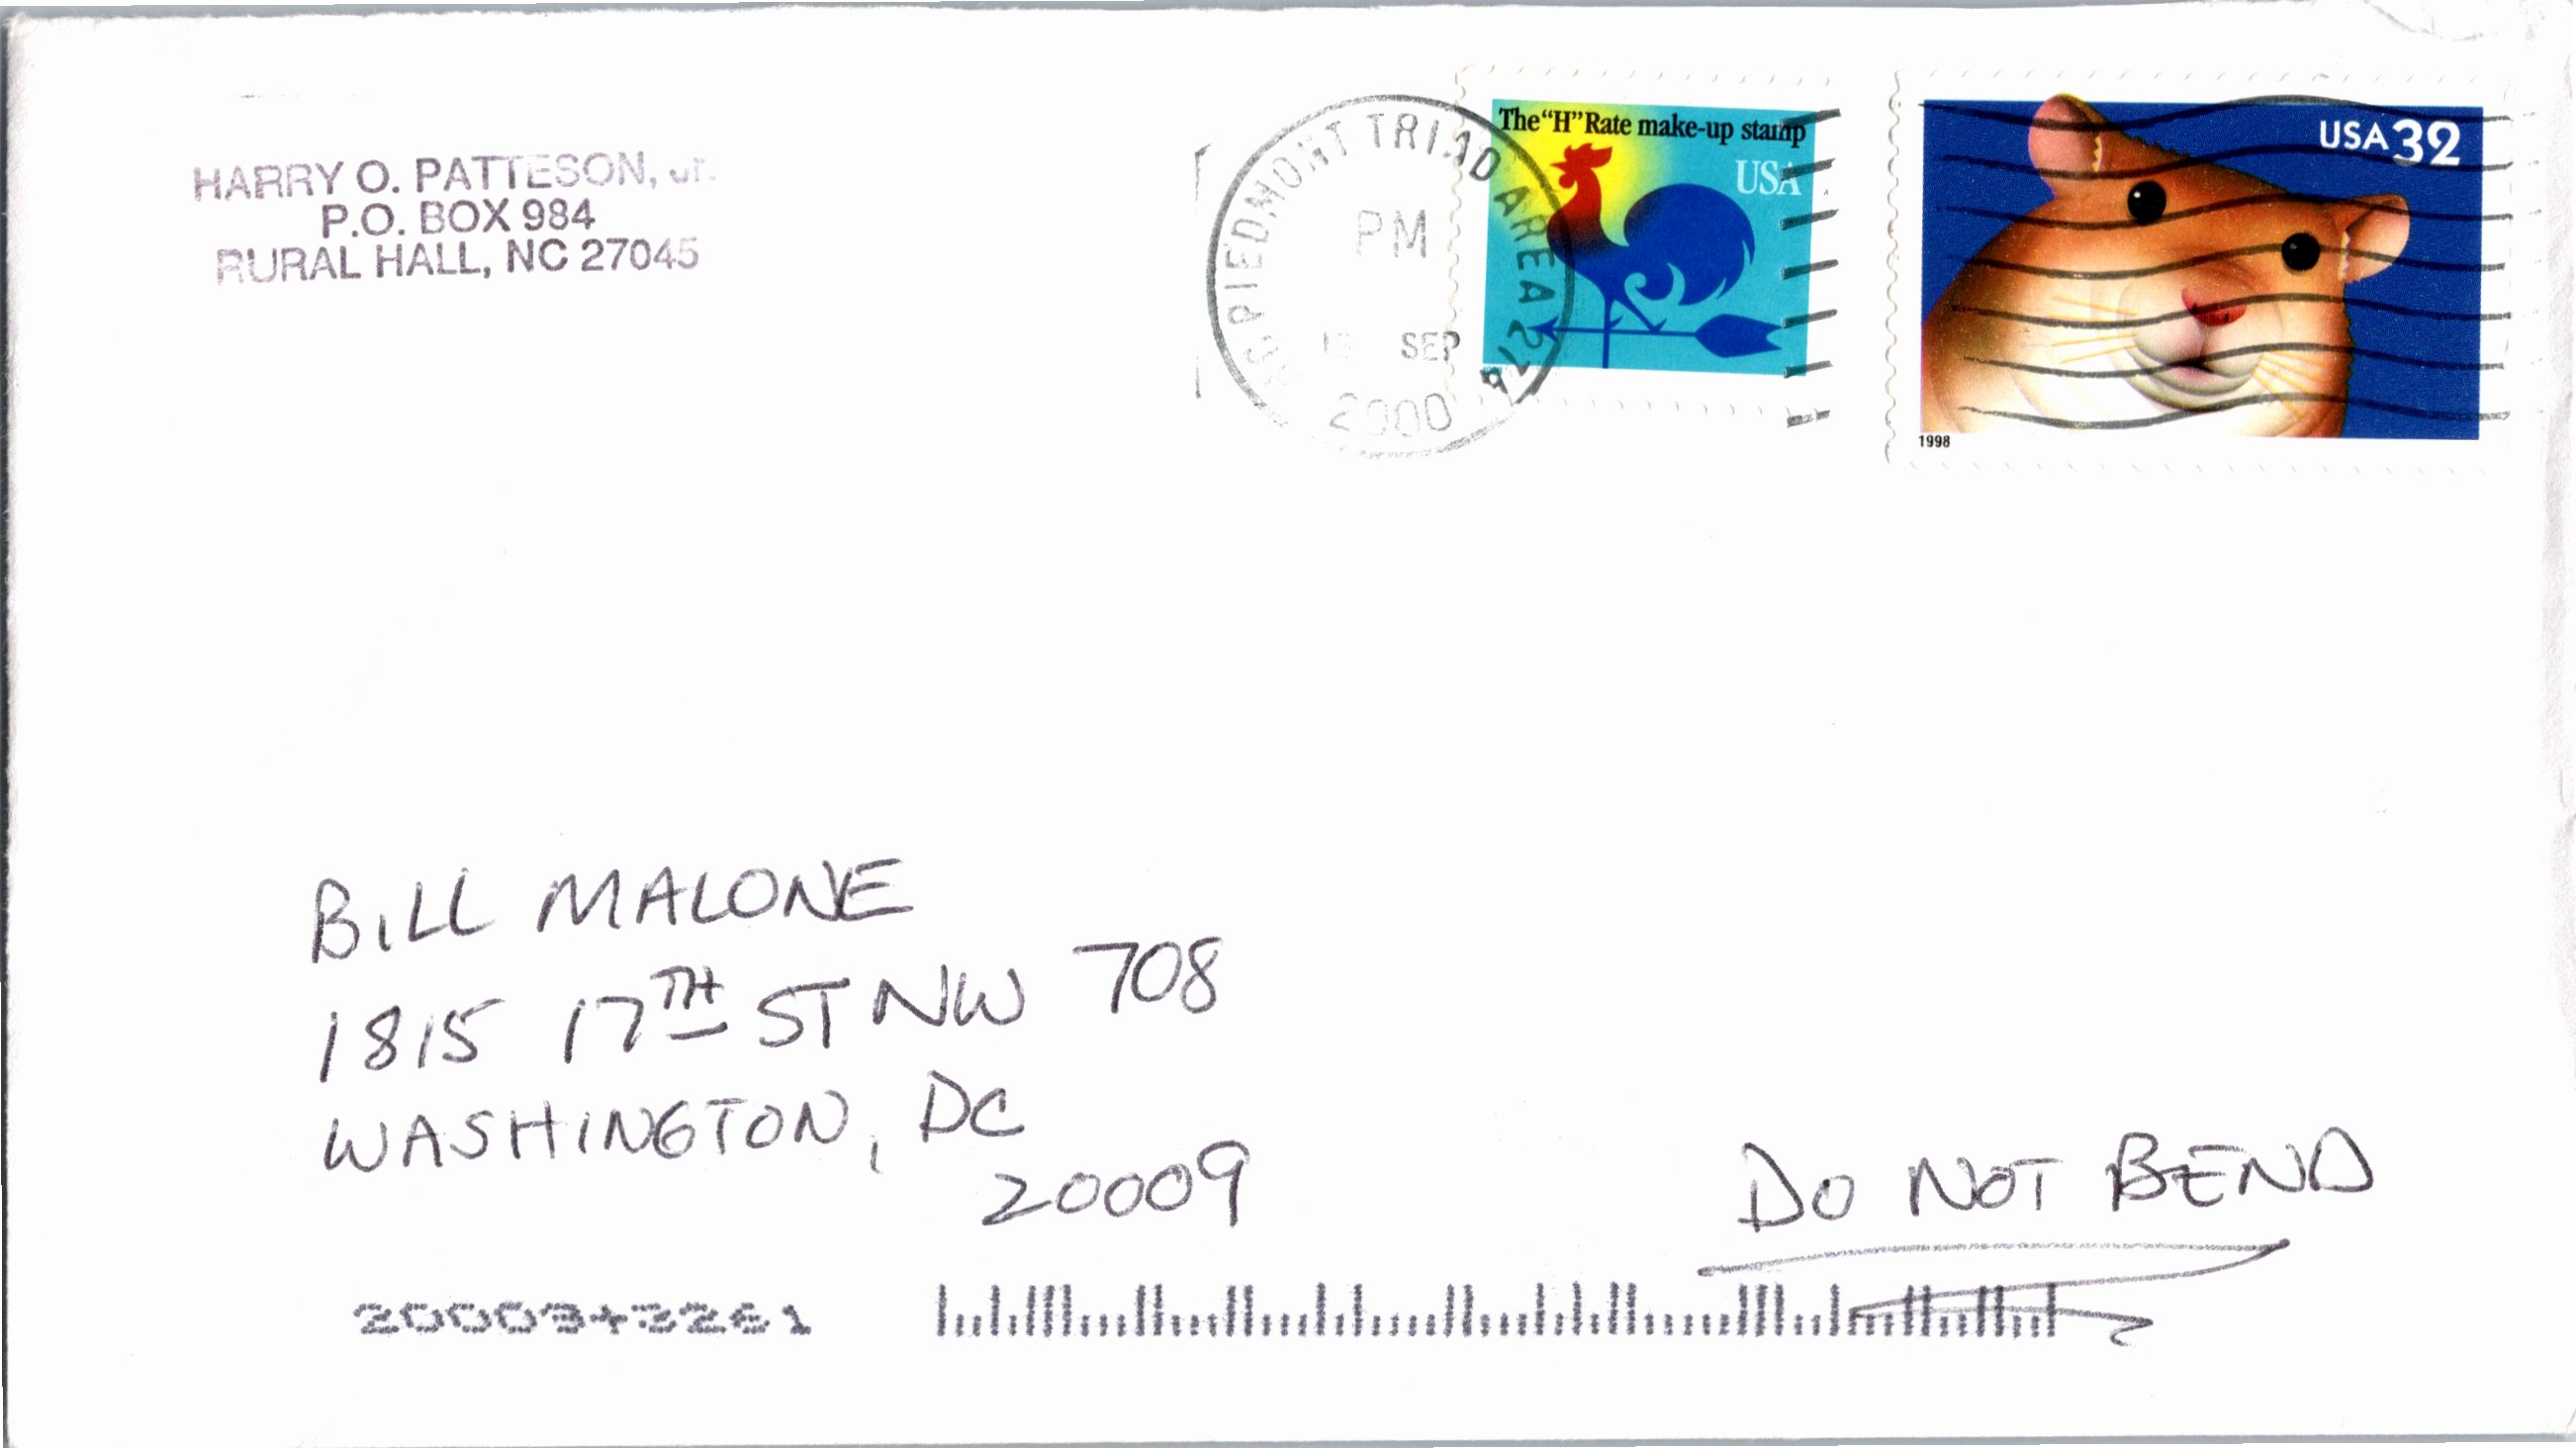 HARRY O. PATTESON, Jr.
P.O. BOX 984
RURAL HALL, NC 27045
PIEDMONT TRIAD AREA
PM
SEP
2000
The "H" Rate make-up stamp
USA
USA 32
1998
BILL MALONE
1815 17TH ST NW 708
WASHINGTON, DC
20009
DO NOT BEND